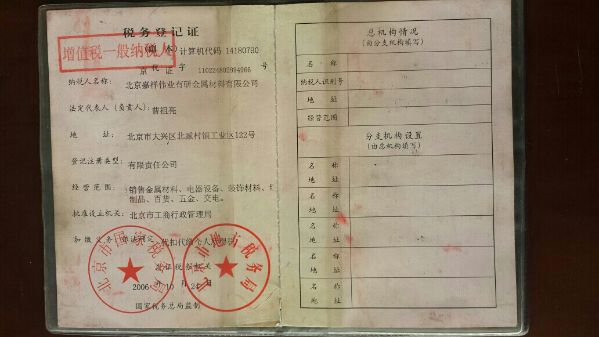 税务登记证
(副本) 计算机代码 14180780
增值税一般纳税人
京 证字 110224802994966 号
纳税人名称： 北京嘉祥伟业有研金属材料有限公司
法定代表人（负责人）： 曾祖亮
地 址： 北京市大兴区北臧村镇工业区122号
登记注册类型： 有限责任公司
经营范围： 销售金属材料、电器设备、装饰材料、
制品、百货、五金、交电。
批准设立机关： 北京市工商行政管理局
扣缴义务： 代扣代缴个人所得
发证税务机关
2006 年 10 月 24 日
国家税务总局监制
北京市国家税务局
北京市地方税务局
总机构情况
（由分支机构填写）
名 称
纳税人识别号
地 址
经营范围
分支机构设置
（由总机构填写）
名 称
地 址
名 称
地 址
名 称
地 址
名 称
地 址
名 称
地 址